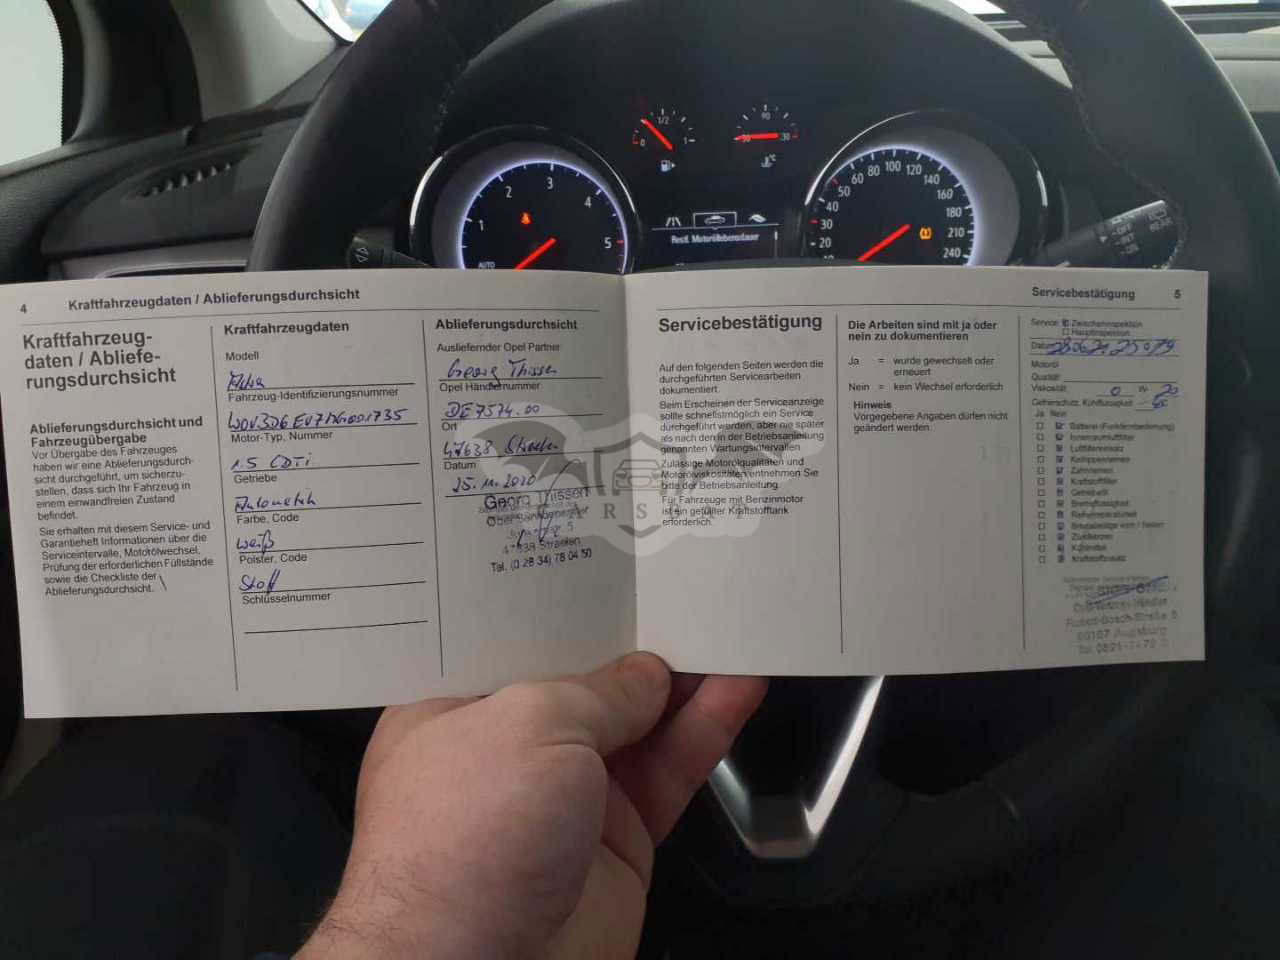 1/2
0
1
90
50
130
1
2
3
4
5
AUTO
Restl. Motoröllebensdauer
20
30
40
50
60
80
100
120
140
160
180
210
240
OFF
INT
ON
REAR
4 Kraftfahrzeugdaten / Ablieferungsdurchsicht
Kraftfahrzeug-
daten / Abliefe-
rungsdurchsicht
Ablieferungsdurchsicht und
Fahrzeugübergabe
Vor Übergabe des Fahrzeuges
haben wir eine Ablieferungsdurch-
sicht durchgeführt, um sicherzu-
stellen, dass sich Ihr Fahrzeug in
einem einwandfreien Zustand
befindet.
Sie erhalten mit diesem Service- und
Garantieheft Informationen über die
Serviceintervalle, Motorölwechsel,
Prüfung der erforderlichen Füllstände
sowie die Checkliste der
Ablieferungsdurchsicht.
Kraftfahrzeugdaten
Modell
Astra
Fahrzeug-Identifizierungsnummer
Motor-Typ, Nummer
1.5 CDTi
Getriebe
Automatik
Farbe, Code
weiß
Polster, Code
Stoff
Schlüsselnummer
Ablieferungsdurchsicht
Ausliefernder Opel Partner
Georg Thissen
Opel Händlernummer
DE7574.00
Ort
47638 Straelen
Datum
25.11.2020
Georg Thissen
47638 Straelen
Tel. (0 28 34) 78 04 50
Servicebestätigung 5
Servicebestätigung
Auf den folgenden Seiten werden die
durchgeführten Servicearbeiten
dokumentiert.
Beim Erscheinen der Serviceanzeige
sollte schnellstmöglich ein Service
durchgeführt werden, aber nie später
als nach den in der Betriebsanleitung
genannten Wartungsintervallen.
Zulässige Motorölqualitäten und
Motorölviskositäten entnehmen Sie
bitte der Betriebsanleitung.
Für Fahrzeuge mit Benzinmotor
ist ein gefüllter Kraftstofftank
erforderlich.
Die Arbeiten sind mit ja oder
nein zu dokumentieren
Ja = wurde gewechselt oder
erneuert
Nein = kein Wechsel erforderlich
Hinweis
Vorgegebene Angaben dürfen nicht
geändert werden
Service: Zwischeninspektion
Hauptinspektion
Datum
Motoröl
Qualität
Viskosität 0 W- 20
Gefrierschutz, Kühlflüssigkeit
Ja Nein
Batterie (Funkfernbedienung)
Innenraumluftfilter
Luftfiltereinsatz
Keilrippenriemen
Zahnriemen
Kraftstofffilter
Getriebeöl
Bremsflüssigkeit
Reifenreparaturset
Bremsbeläge vorn / hinten
Zündkerzen
Kältemittel
Kraftstoffzusatz
Robert-Bosch-Straße
86167 Augsburg
CARS